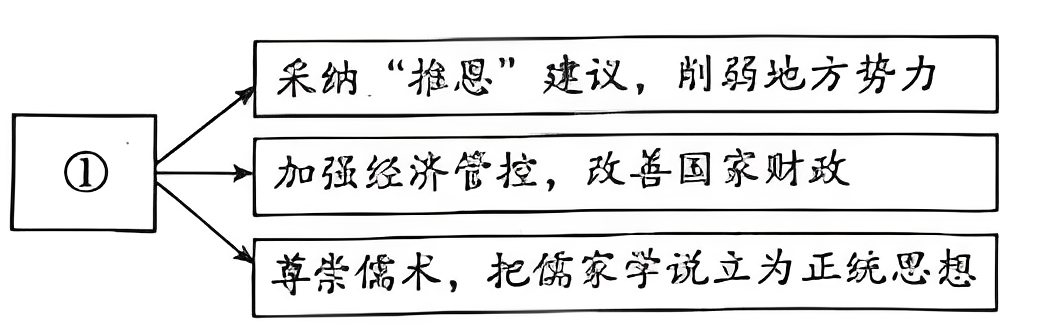 ①
采纳“推恩”建议，削弱地方势力
加强经济管控，改善国家财政
尊崇儒术，把儒家学说立为正统思想